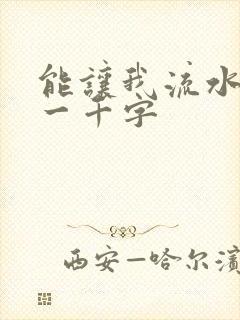 能讓我流水
一千字
西安—哈尔滨